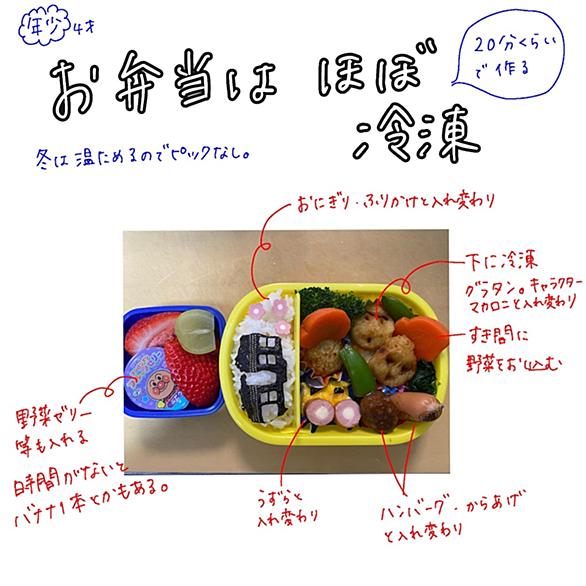 年少 4才
お弁当は ほぼ
冷凍
20分くらい
で作る
冬は温ためるのでピックなし。
おにぎり・ふりかけと入れ変わり
下に冷凍
グラタン。キャラクター
マカロニと入れ変わり
すき間に
野菜をおし込む
野菜ゼリー
等も入れる
時間がないと
バナナ1本とかもある。
うずらと
入れ変わり
ハンバーグ・からあげ
と入れ変わり